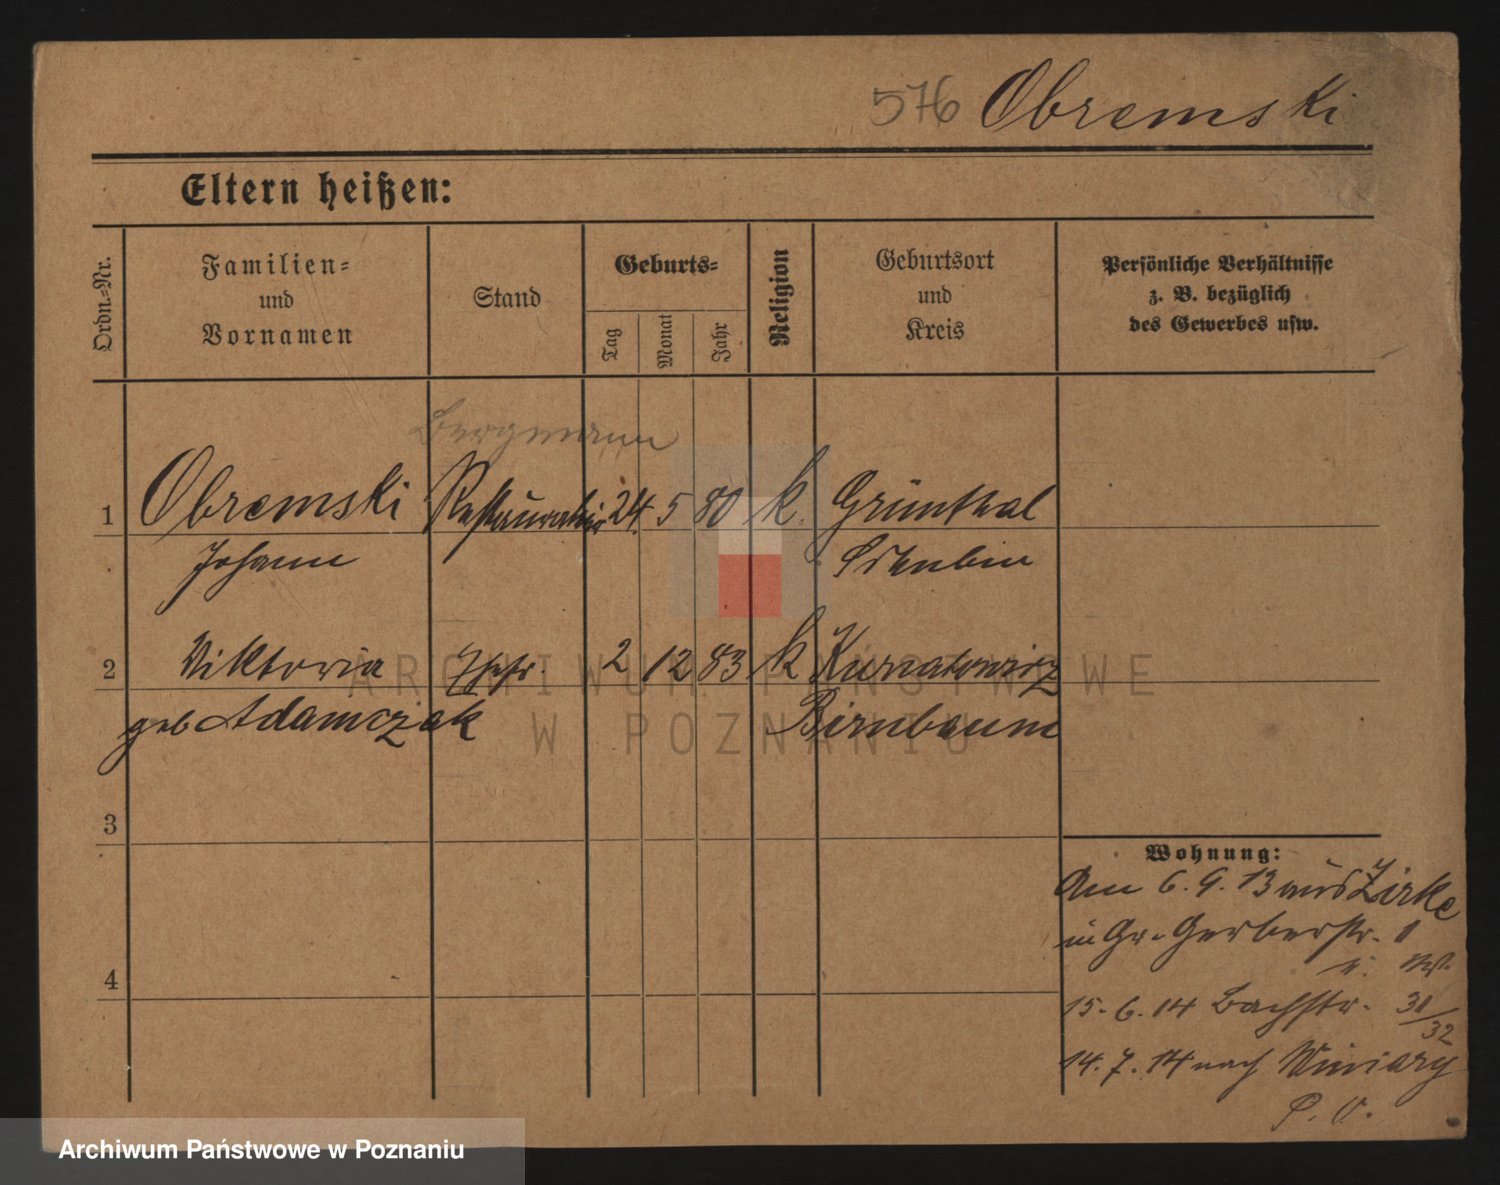 576 Obremski
Eltern heißen:
Ordn.-Nr.
Familien-
und
Vornamen
Stand
Geburts-
Tag
Monat
Jahr
Religion
Geburtsort
und
Kreis
Persönliche Verhältnisse
z. B. bezüglich
des Gewerbes usw.
Bergmann
1 Obremski Restaurateur 24. 5 80 k. Grünthal
Johann Schubin
2 Viktoria Ehefr. 2 12 83 k Kurnatowitz
geb Adamczak Birnbaum
3
4
Wohnung:
Am 6. 9. 13 aus Zirke
in Gr. Gerberstr. 1
15. 6. 14 Bachstr. 31/32
14. 7. 14 nach Winiary
P. O.
ARCHIWUM PAŃSTWOWE
W POZNANIU
Archiwum Państwowe w Poznaniu